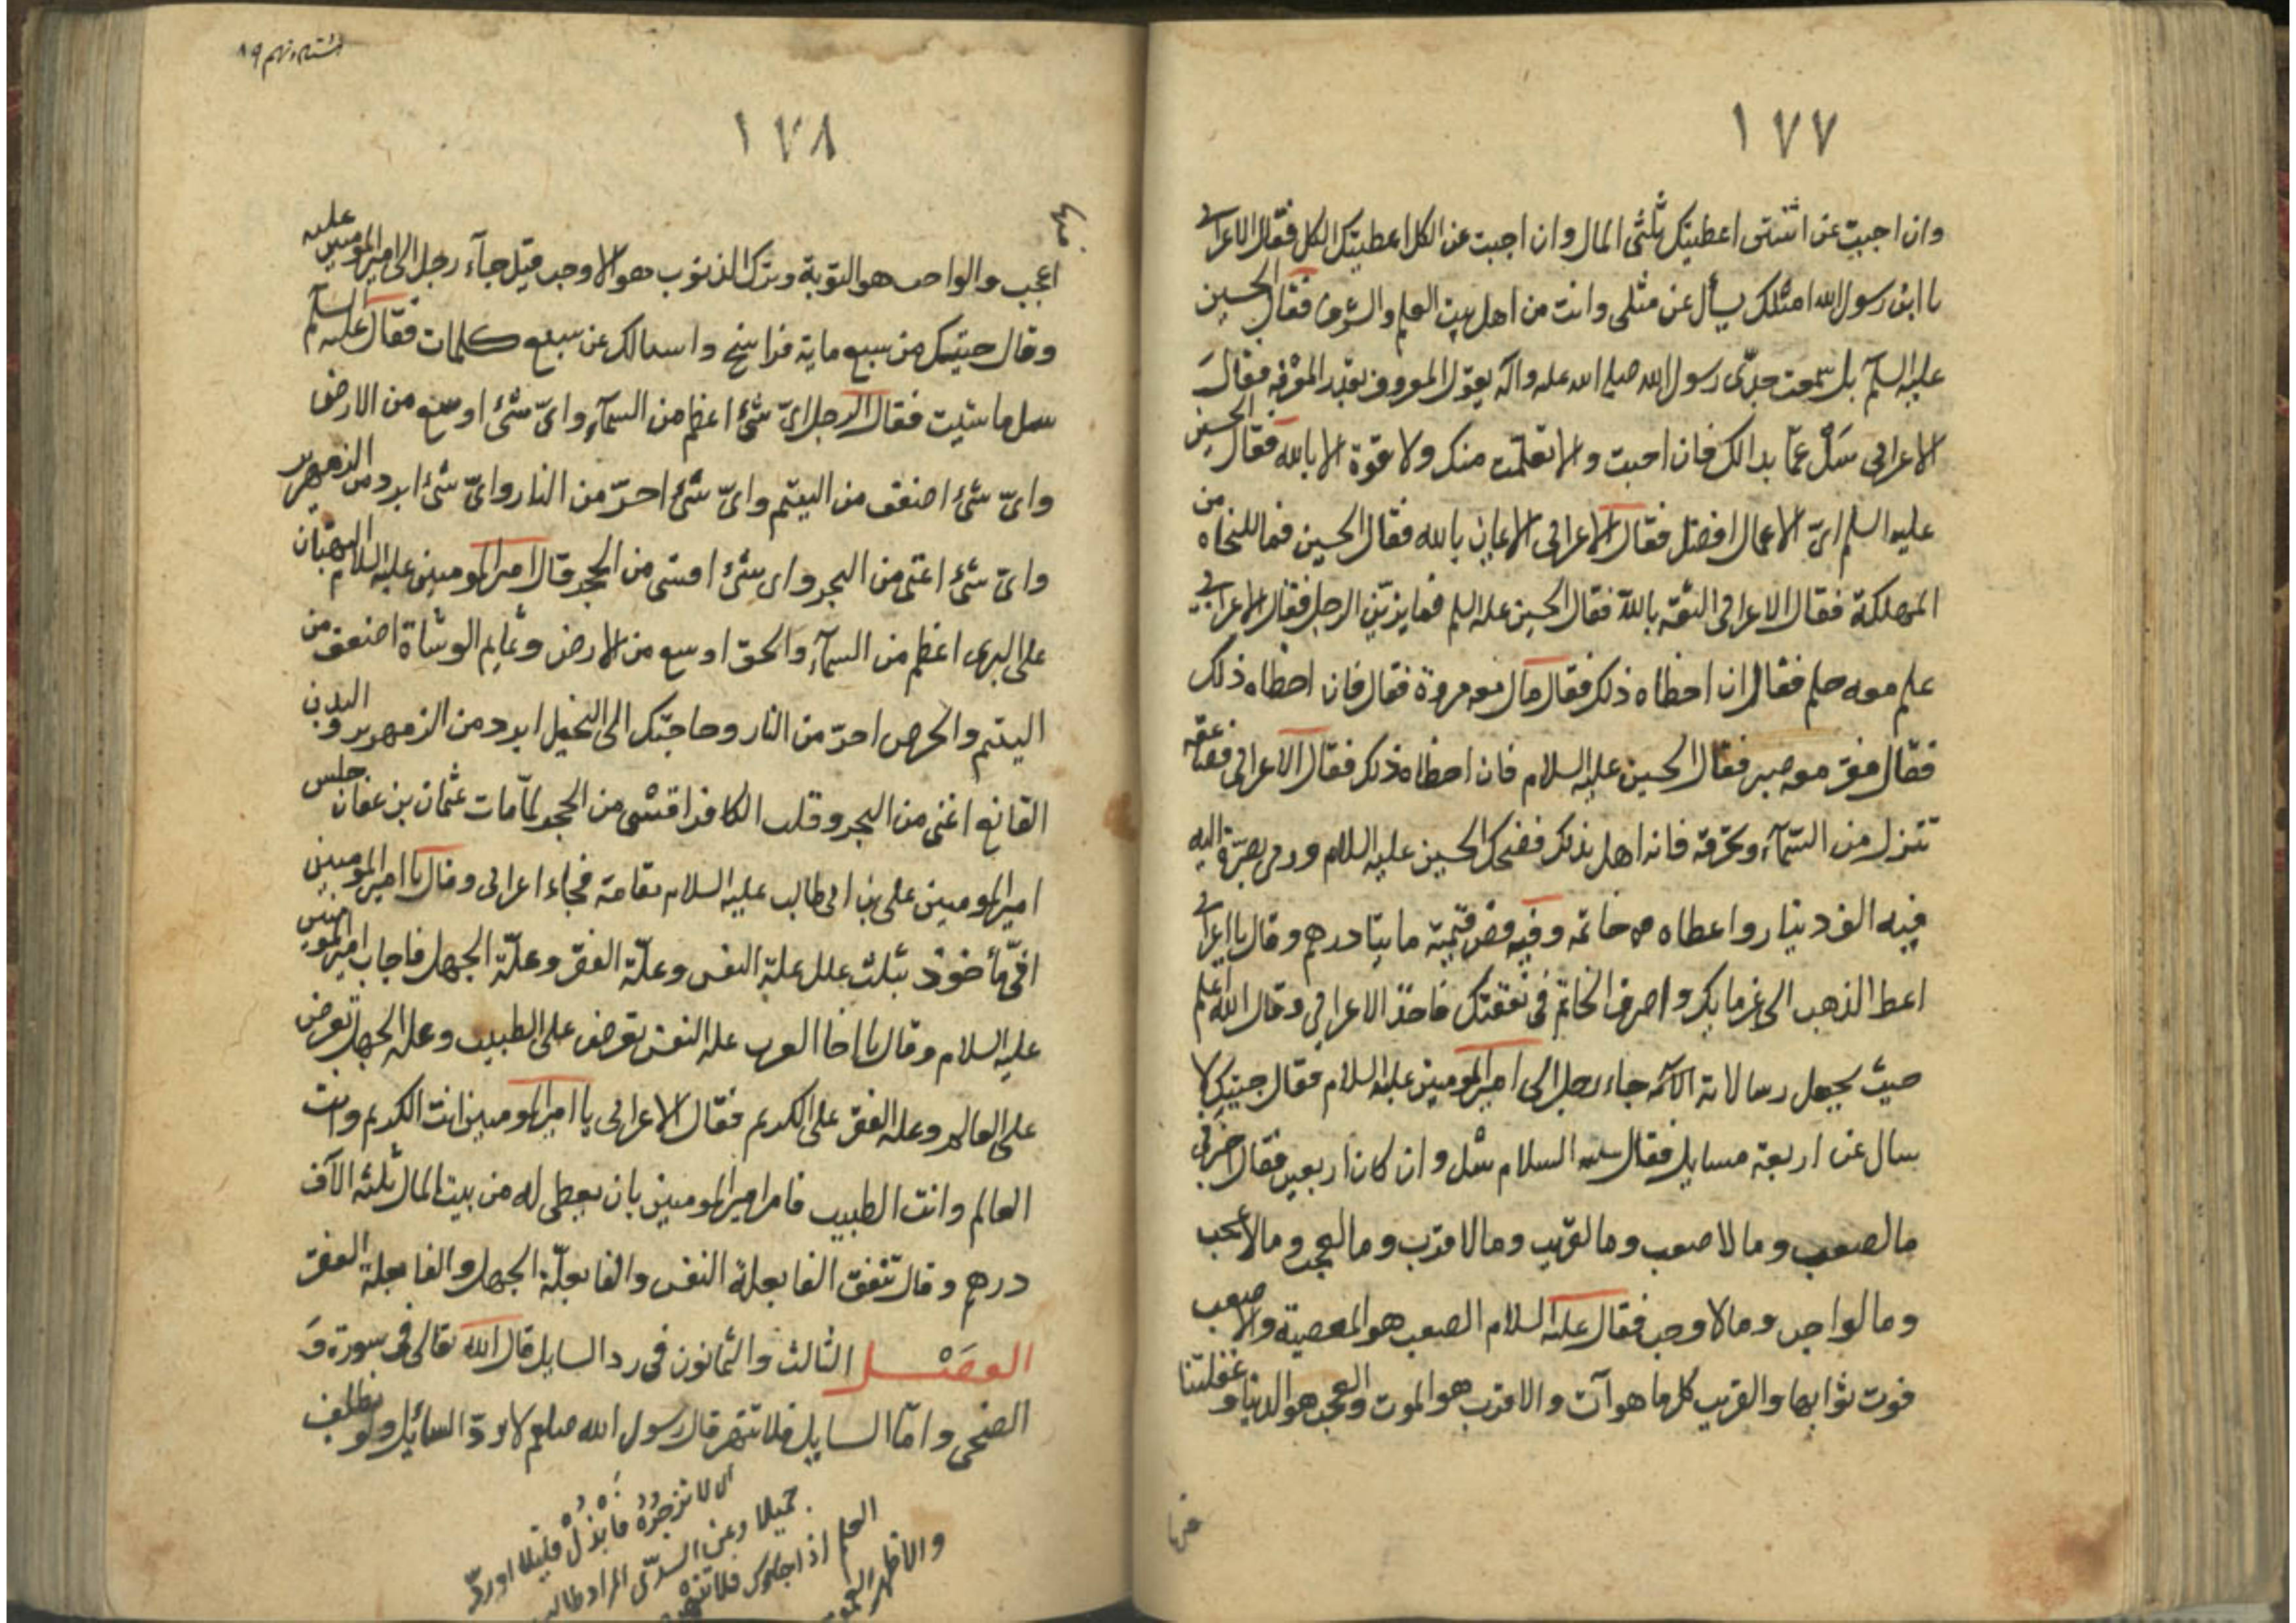 ١٧٧
وان اجبت عن اثنتى اعطيتك ثلثى المال وان اجبت عن الكل اعطيتك الكل فقال الاعرابى
يا ابن رسول الله امثلك يسأل عن مثلى وانت من اهل بيت العلم والشرف فقال الحسين
عليه السلم بل سمعت جدّى رسول الله صلى الله عليه واله يقول المعروف بقدر المعرفة فقال
الاعرابى سَلْ عمّا بدالك فان اجبت والا تعلّمت منك ولا قوة الا بالله فقال الحسين
عليه السلم اىّ الاعمال افضل فقال الاعرابى الايمان بالله فقال الحسين فما للنجاه من
المهلكة فقال الاعرابى الثقة بالله فقال الحسين عليه السلم فما يزيّن الرجل فقال الاعرابى
علم معه حلم فقال ان اخطاه ذلك فقال مال معه مروة فقال فان اخطاه ذلك
فقال فقر معه صبر فقال الحسين عليه السلام فان اخطاه ذلك فقال الاعرابى فصاعقه
تنزل من السّمآء وتحرقه فانه اهل بذلك فضحك الحسين عليه السلام ورمى بصرّة اليه
فيه الف دينار واعطاه خاتمه وفيه فص قيمته مايتا درهم وقال يا اعرابى
اعط الذهب الى غرمايك واصرف الخاتم فى نفقتك فاخذ الاعرابي وقال الله اعلم
حيث يجعل رسالاته الآية جاء رجل الى امير المومنين عليه السلام فقال جيتك لا
سال عن اربعة مسايل فقال عليه السلام سل وان كان اربعين فقال اخبرنى
مالصعب ومالاصعب ومالقريب ومالاقرب ومالعجب ومالاعجب
ومالواجب ومالاوجب فقال عليه السلام الصعب هو المعصية والاصعب
فوت ثوابها والقريب كل ما هو آت والاقرب هو الموت والعجب هو الدنيا وغفلتنا
١٧٨
هشتاد و نهم ٨٩
اعجب والواجب هو التوبة وترك الذنوب هو الاوجب قيل جآء رجل الى امير المومنين عليه السلم
وقال جيتك من سبع ماية فراسخ واسالك عن سبع كلمات فقال عليه
سل ماشيت فقال الرجل اىّ شئ اعظم من السمآء واىّ شئ اوسع من الارض
واىّ شئ اضعف من اليتيم واىّ شئ احرّ من النار واىّ شئ ابرد من الزمهرير
واى شئ اغنى من البحر واى شئ اقسى من الحجر قال امير المومنين عليه السلام البهتان
على البرى اعظم من السمآء والحق اوسع من الارض ونمايم الوشاة اضعف من
اليتيم والحرص احرّ من النار وحاجتك الى البخيل ابرد من الزمهرير والبدن
القانع اغنى من البحر وقلب الكافر اقسى من الحجر لمّا مات عثمان بن عفان جلس
امير المومنين على بن ابى طالب عليه السلام مقامه فجاء اعرابى وقال يا امير المومنين
انّى مأخوذ بثلث علل علة النفس وعلّة الفقر وعلّة الجهل فاجاب امير المومنين
عليه السلام وقال يا اخا العرب علة النفس تعرض على الطبيب وعلة الجهل تعرض
على العالم وعلة الفقر على الكريم فقال الاعرابى يا امير المومنين انت الكريم وانت
العالم وانت الطبيب فامر امير المومنين بان يعطى له من بيت المال ثلثه الآف
درهم وقال تنفق الفا بعلة النفس والفا بعلّة الجهل والفا بعلة الفقر
الفصل الثالث والثمانون فى رد السايل قال الله تعالى فى سورة وَ
الضحى وامّا السايل فلا تنهر قال رسول الله صلعم لا تردّ السائل ولو بظلف
لا تزجرْهُ فابْذلْ قليلا او ردّ
جميلا وعن السدّى المراد طالب
العلم اذا جاءك فلا تنهر
والاظهر